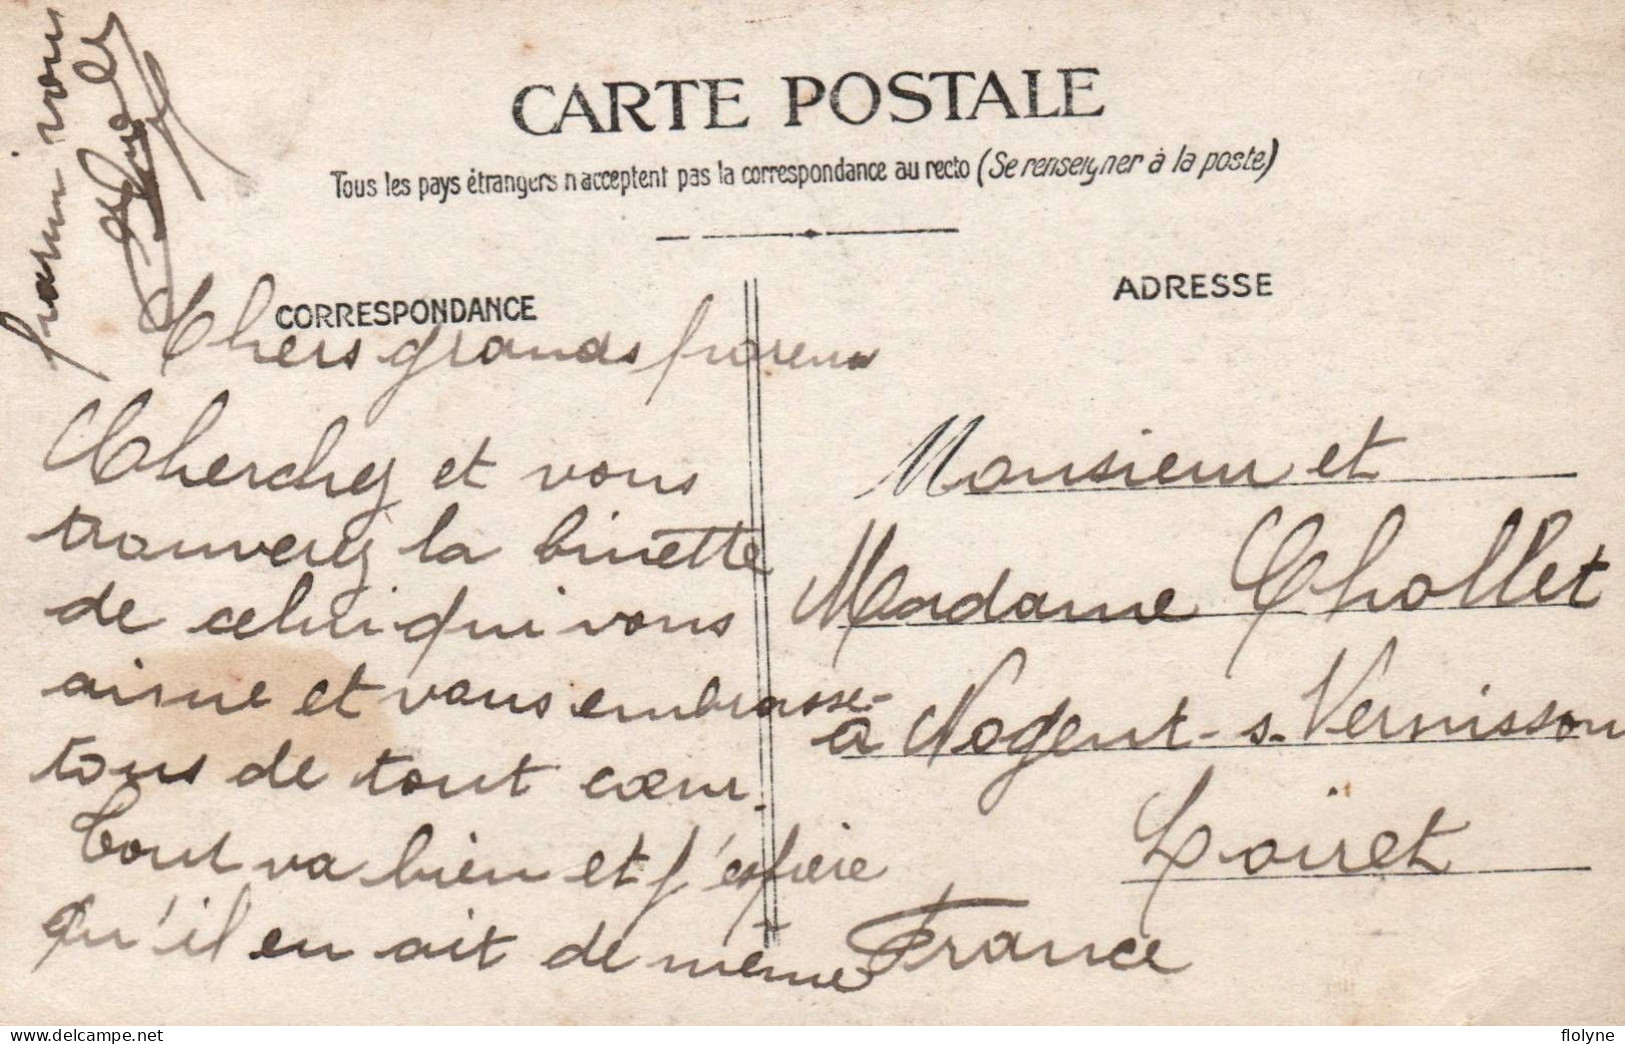 CARTE POSTALE
Tous les pays étrangers n'acceptent pas la correspondance au recto (Se renseigner à la poste)
CORRESPONDANCE
Chers grands parents
Cherchez et vous
trouverez la binette
de celui qui vous
aime et vous embrasse
tous de tout cœur.
Tout va bien et j'espère
qu'il en ait de même
parmi vous
ADRESSE
Monsieur et
Madame Chollet
a Nogent-s-Vernisson
Loiret
France
delcampe.net
flolyne